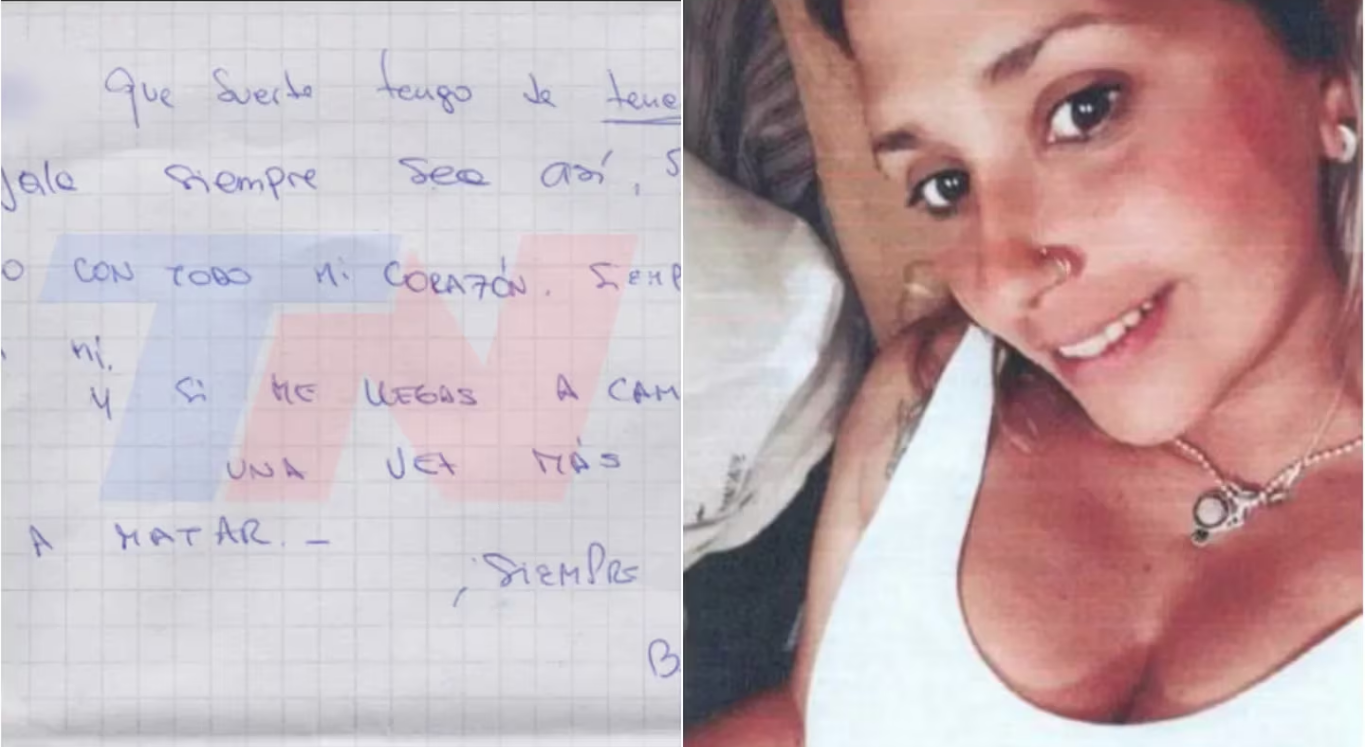 Que suerte tengo de tene
jala siempre sea así, s
O CON TODO MI CORAZÓN. SIEMP
mí.
Y SI ME LLEGAS A CAM
UNA VEZ MÁS
A MATAR. -
, SIEMPRE
B
TN